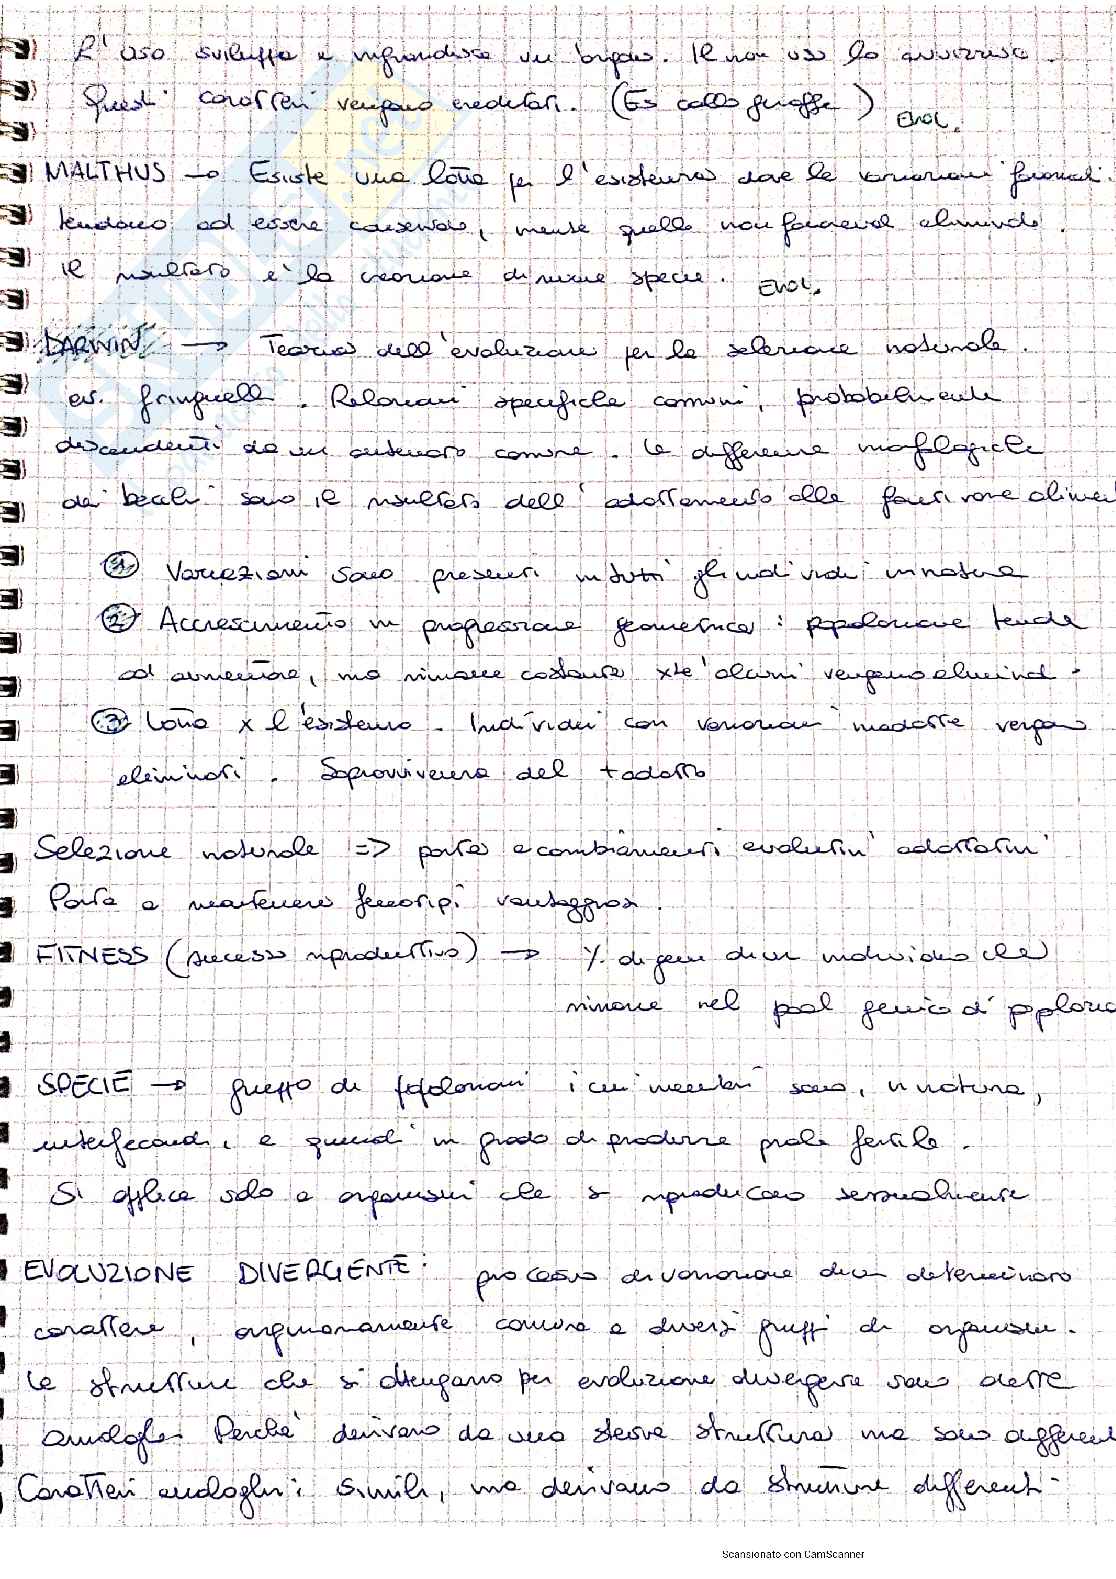 L'uso sviluppa e ingrandisce un organo. Il non uso lo avvizzisce.
Questi caratteri vengono ereditati. (Es collo giraffe) Evol.
MALTHUS → Esiste una lotta per l'esistenza dove le variazioni favorevoli
tendono ad essere conservate, mentre quelle non favorevoli eliminate.
Il risultato e' la creazione di nuove specie. Evol.
DARWIN → Teoria dell'evoluzione per la selezione naturale.
es. fringuelli. Relazioni specifiche comuni, probabilmente
discendenti da un antenato comune. Le differenze morfologiche
dei becchi sono il risultato dell'adattamento alle fonti alimen
1 Variazioni sono presenti in tutti gli individui in natura
2 Accrescimento in progressione geometrica: popolazione tende
ad aumentare, ma rimane costante xke' alcuni vengono eliminati.
3 Lotta x l'esistenza. Individui con variazioni inadatte vengono
eliminati. Sopravvivenza del + adatto
Selezione naturale => porta a cambiamenti evolutivi adattativi
Porta a mantenere fenotipi vantaggiosi.
FITNESS (successo riproduttivo) → % di geni di un individuo che
rimane nel pool genico di popolazio
SPECIE → gruppo di popolazioni i cui membri sono, in natura,
interfecondi, e quindi in grado di produrre prole fertile.
Si applica solo a organismi che si riproducono sessualmente
EVOLUZIONE DIVERGENTE: processo di variazione di un determinato
carattere, originariamente comune a diversi gruppi di organismi.
Le strutture che si ottengono per evoluzione divergente sono dette
omologhe. Perche' derivano da una stessa struttura ma sono different
Caratteri analoghi: simili, ma derivano da strutture differenti.
Scansionato con CamScanner